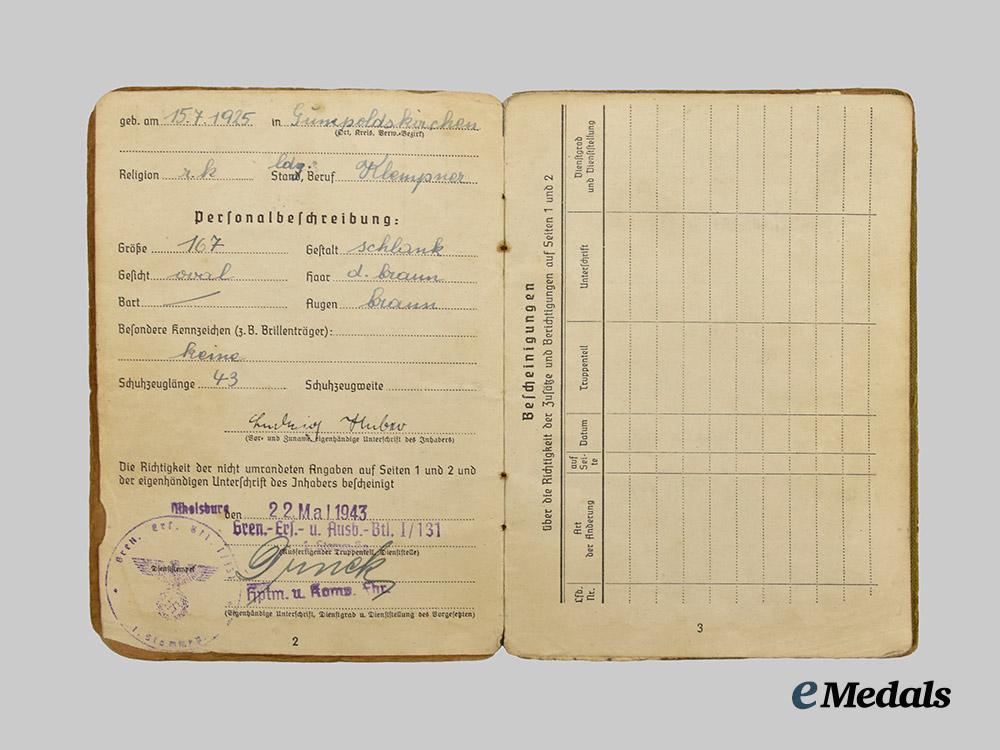 geb. am 15.7.1925 in Gumpoldskirchen
(Ort, Kreis, Verw.-Bezirk)
Religion r.k Stand, Beruf ldg.: Klempner
Personalbeschreibung:
Größe 167 Gestalt schlank
Gesicht oval Haar d. braun
Bart — Augen braun
Besondere Kennzeichen (z.B. Brillenträger):
keine
Schuhzeuglänge 43 Schuhzeugweite
Ludwig Huber
(Vor- und Zuname, eigenhändige Unterschrift des Inhabers)
Die Richtigkeit der nicht umrandeten Angaben auf Seiten 1 und 2 und
der eigenhändigen Unterschrift des Inhabers bescheinigt
Nikolsburg den 22. Mai 1943
Gren.-Ers.- u. Ausb.-Btl. I/131
(Ausfertigender Truppenteil, Dienststelle)
Dienststempel
Hptm. u. Komp. Fhr.
(Eigenhändige Unterschrift, Dienstgrad u. Dienststellung des Vorgesetzten)
2
Bescheinigungen
über die Richtigkeit der Zusätze und Berichtigungen auf Seiten 1 und 2
Lfd. Nr.
Art der Änderung
auf Sei- te
Datum
Truppenteil
Unterschrift
Dienstgrad und Dienststellung
3
eMedals